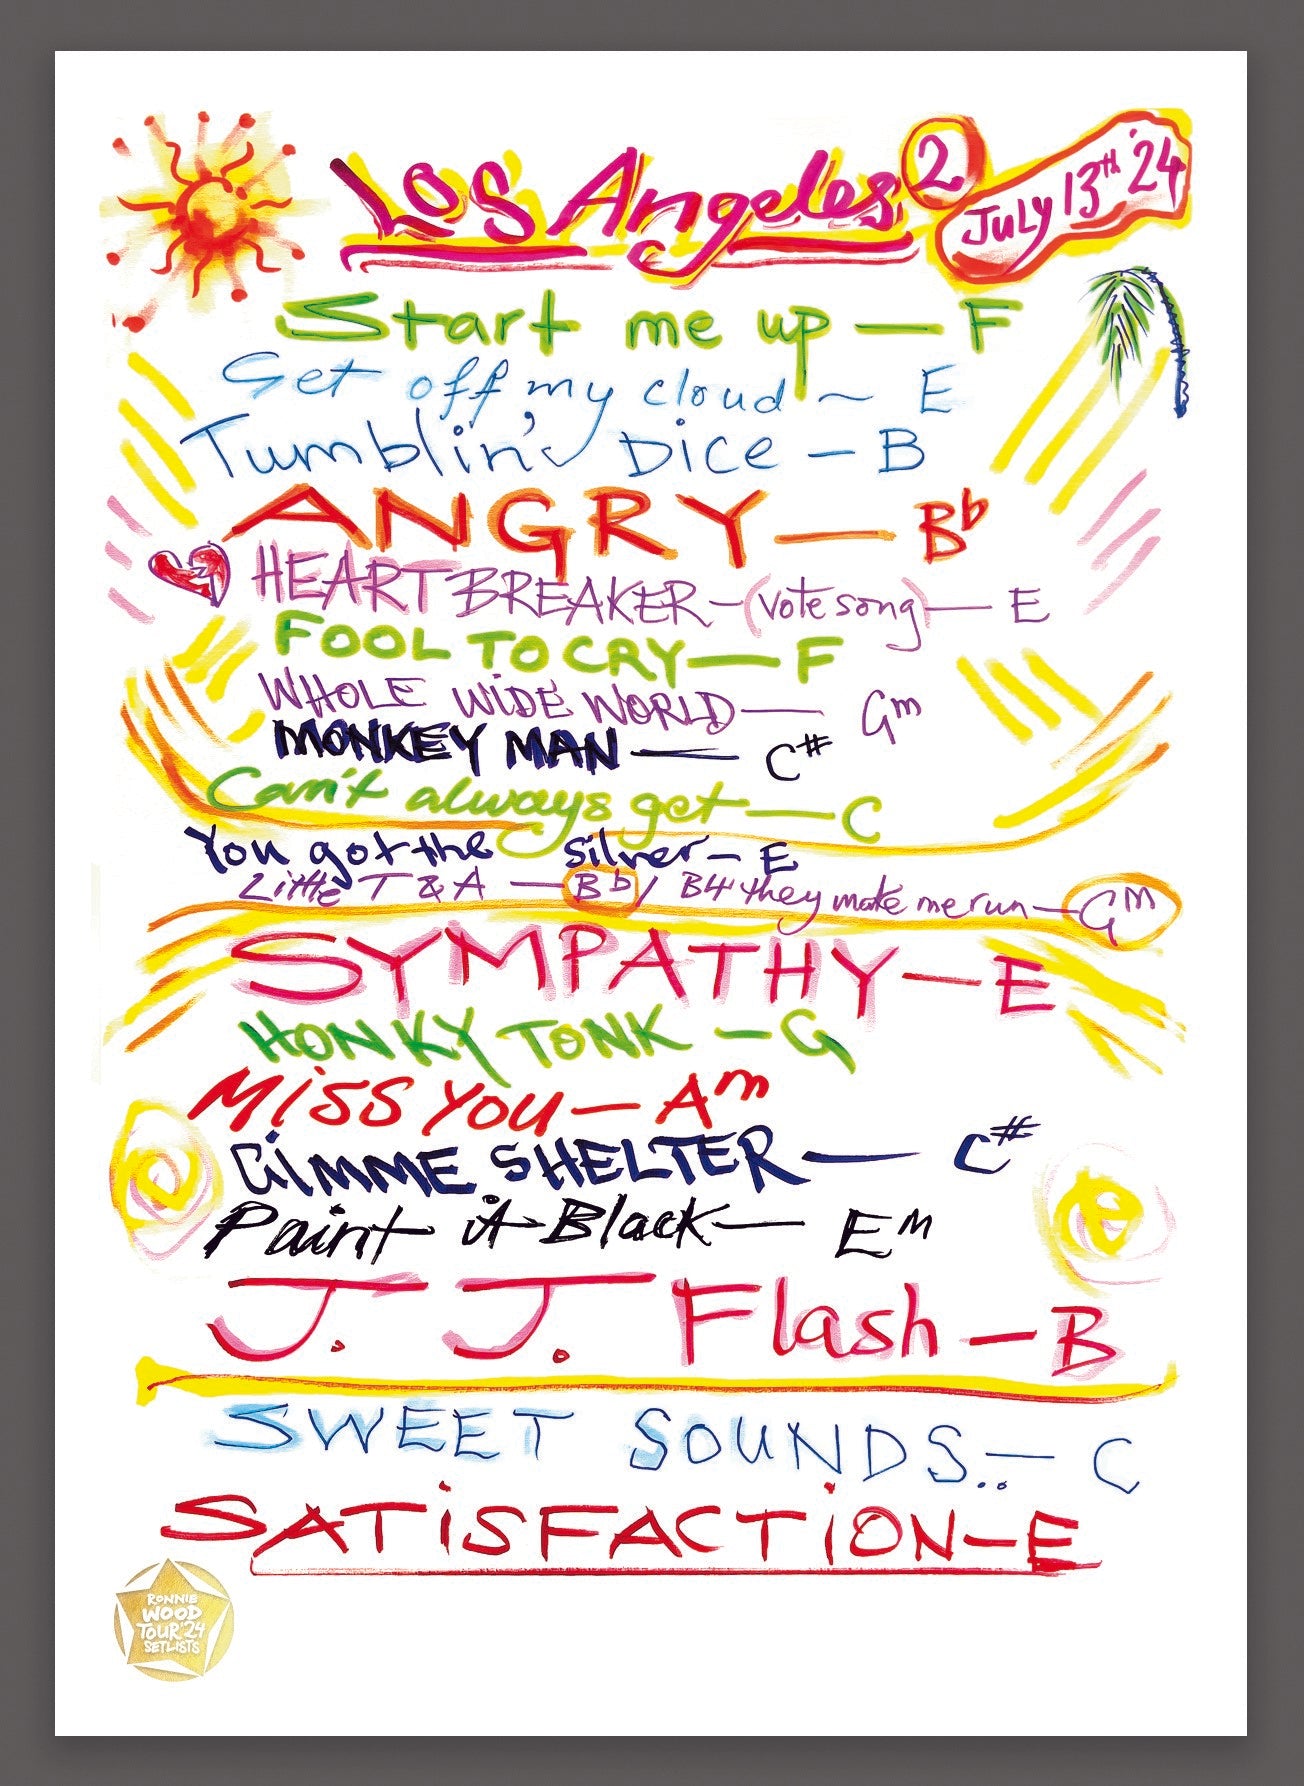 Los Angeles 2 July 13th '24
Start me up — F
Get off my cloud ~ E
Tumblin' Dice — B
ANGRY — Bb
HEARTBREAKER — (vote song) — E
FOOL TO CRY — F
WHOLE WIDE WORLD — Gm
MONKEY MAN — C#
Can't always get — C
You got the silver — E
Little T & A — Bb / B4 they make me run — Gm
SYMPATHY — E
HONKY TONK — G
MiSS YOU — Am
GiMME SHELTER — C#
Paint it Black — Em
J. J. Flash — B
SWEET SOUNDS.. — C
SATiSFACTiON — E
RONNIE
WOOD
TOUR '24
SETLISTS